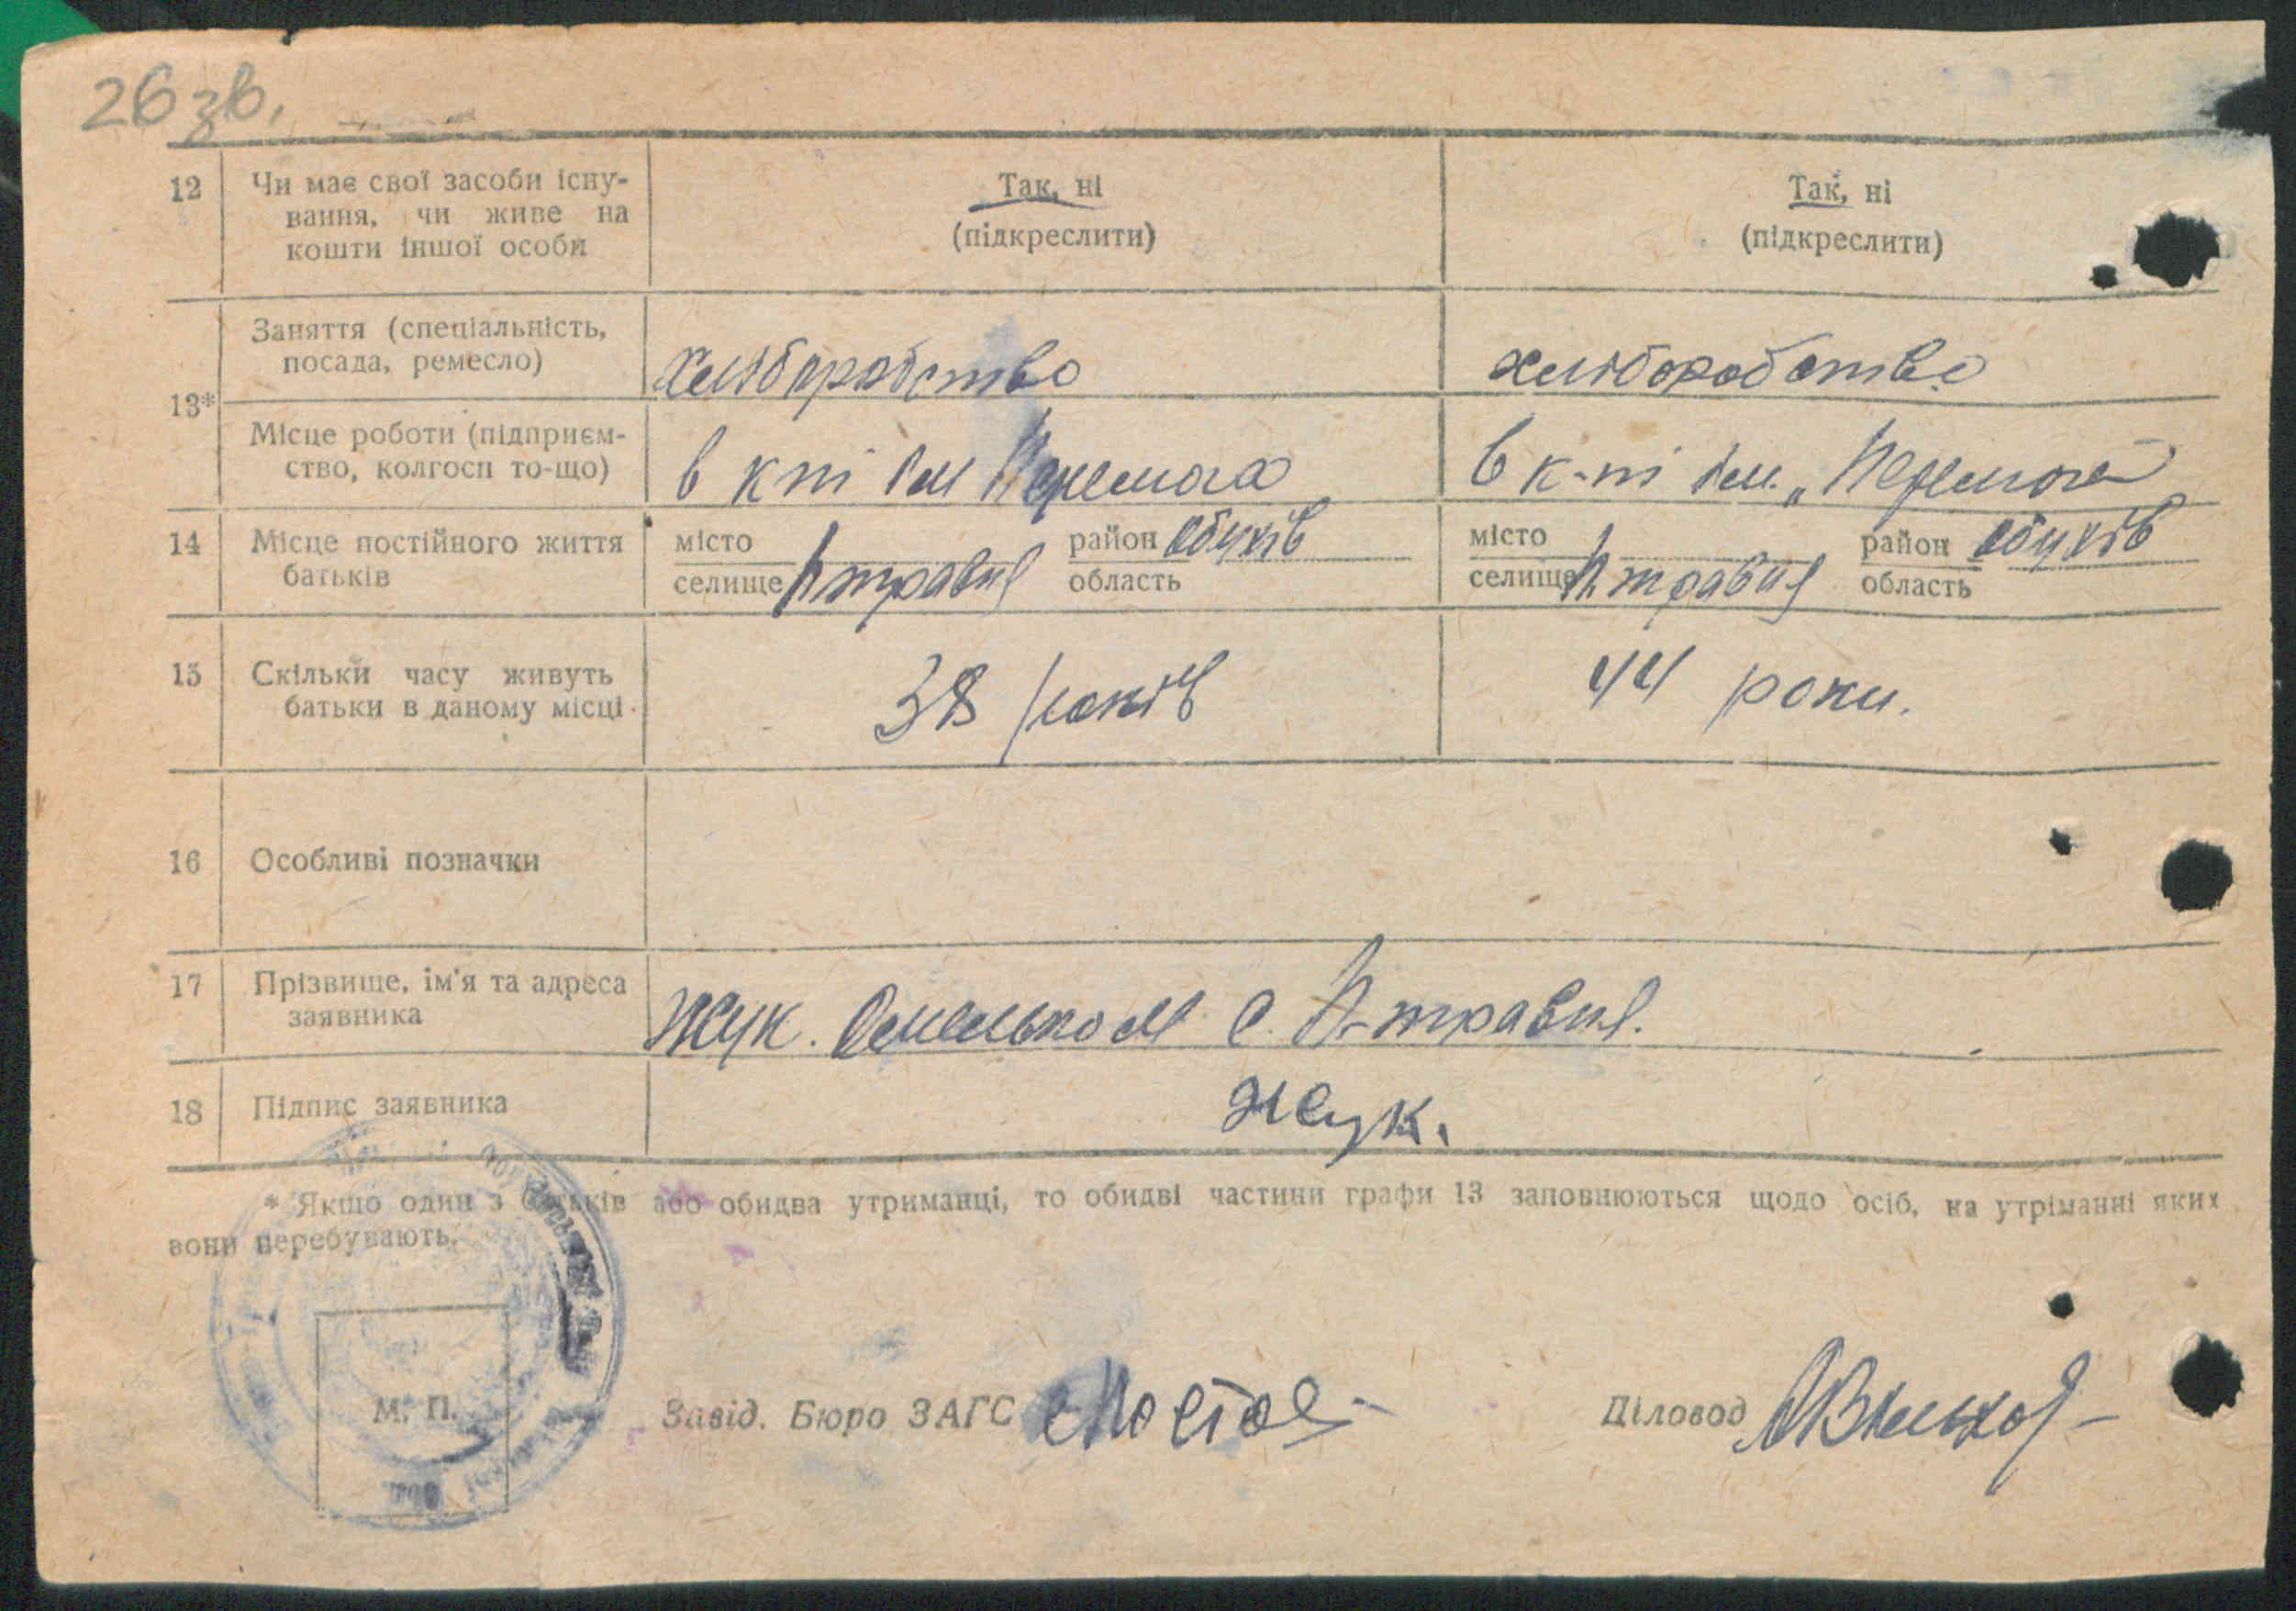 26 зв.
12 Чи має свої засоби існу- Так, ні Так, ні
вання, чи живе на (підкреслити) (підкреслити)
кошти іншої особи
13* Заняття (спеціальність, хліборобство хліборобство
посада, ремесло)
Місце роботи (підприєм- в к-ті ім Перемога в к-ті ім. „Перемога"
ство, колгосп то-що)
14 Місце постійного життя місто район Обухів місто район Обухів
батьків селище травня область селище травня область
15 Скільки часу живуть 38 років 44 роки.
батьки в даному місці
16 Особливі позначки
17 Прізвище, ім'я та адреса Жук. Омелько М с. травня.
заявника
18 Підпис заявника Жук.
* Якщо один з батьків або обидва утриманці, то обидві частини графи 13 заповнюються щодо осіб, на утріманні яких
вони перебувають.
М. П.
Завід. Бюро ЗАГС
Діловод